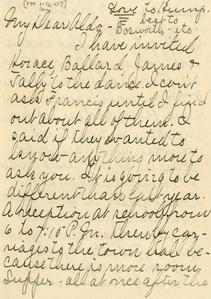 [PM 1-16-07]
Love to Hump.
best to
Boswells - etc
My Dear Aldo -
I have invited
Horace Ballard, James &
Sally to the dance. I can't
ask Francis until I find
out about all of them. I
said if they wanted to
know anything more to
ask you. It is going to be
different than last year.
A reception at school from
6 to 7:15 P.M. then by car-
riage to the town hall be-
cause there is more room
Supper - all at once after the